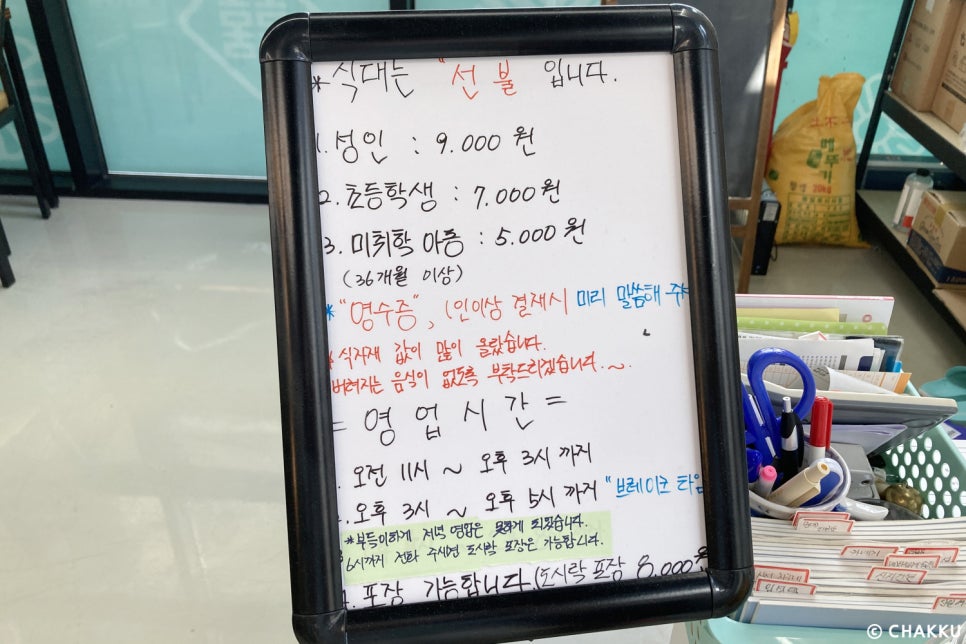 * 식대는 "선불 입니다.
1. 성인 : 9.000 원
2. 초등학생 : 7.000원
3. 미취학 아동 : 5.000 원
(36개월 이상)
* "영수증", (인이상 결재시 미리 말씀해 주
* 식자재 값이 많이 올랐습니다.
버려지는 음식이 없도록 부탁드리겠습니다.~
= 영 업 시 간 =
오전 11시 ~ 오후 3시 까지
2. 오후 3시 ~ 오후 5시 까지 "브레이크 타임
* 부득이하게 저녁 영업은 못하게 되었습니다.
6시까지 전화 주시면 도시락 포장은 가능합니다.
4. 포장 가능합니다. (도시락 포장 8.000원
메뚜기
20kg
© CHAKKU